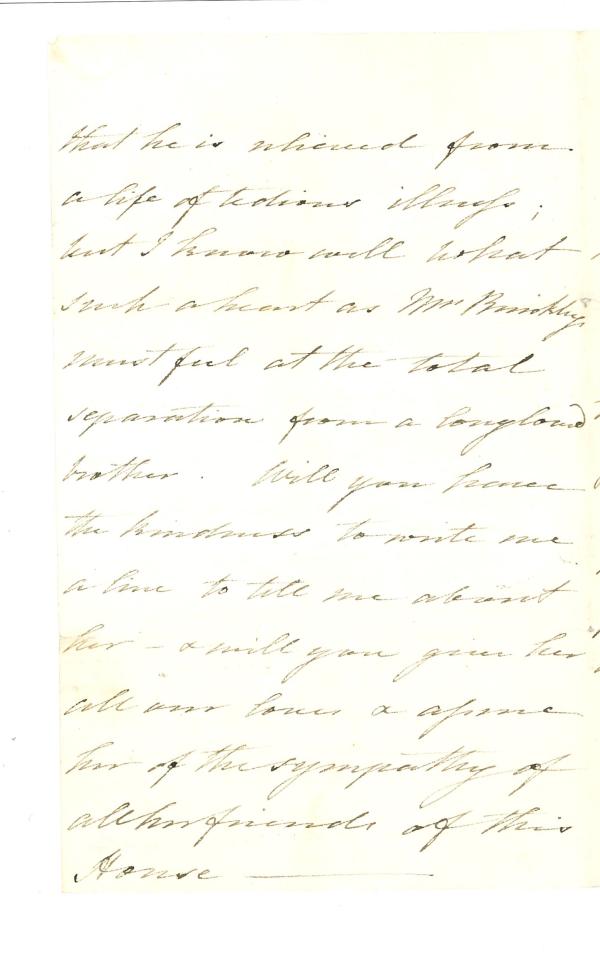 that he is relieved from
a life of tedious illness;
but I know well what
such a heart as Mrs Brinkleys
must feel at the total
separation from a long loved
brother. Will you have
the kindness to write me
a line to tell me about
her - & will you give her
all our loves & assure
her of the sympathy of
all her friends of this
House —